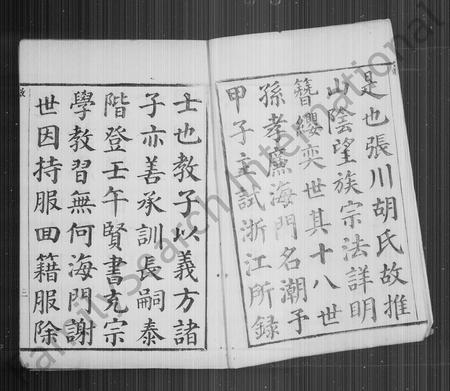 是也張川胡氏故推
山陰望族宗法詳明
簪纓奕世其十八世
孫孝廉海門名潮子
甲子主試浙江所錄
士也教子以義方諸
子亦善承訓長嗣泰
階登壬午賢書充宗
學教習無何海門謝
世因持服回籍服除
二
FamilySearch International